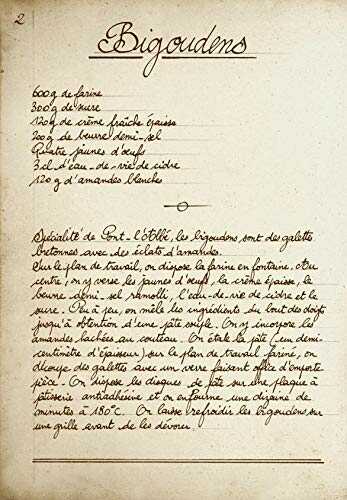 2
Bigoudens
600g de farine
300g de sucre
120g de crême fraîche épaisse
200g de beurre demi-sel
Quatre jaunes d'œufs
3 cl d'eau-de-vie de cidre
120g d'amandes blanches
Spécialité de Pont-l'Abbé, les bigoudens sont des galettes
bretonnes avec des éclats d'amandes.
Sur le plan de travail, on dispose la farine en fontaine. Au
centre, on y verse les jaunes d'œufs, la crème épaisse, le
beurre demi-sel ramolli, l'eau-de-vie de cidre et le
sucre. Peu à peu, on mêle les ingrédients du bout des doigts
jusqu'à obtention d'une pâte souple. On y incorpore les
amandes hachées au couteau. On étale la pâte (un demi-
centimètre d'épaisseur) sur le plan de travail fariné, on
découpe des galettes avec un verre faisant office d'emporte
pièce. On dispose les disques de pâte sur une plaque à
pâtisserie antiadhésive et on enfourne une dizaine de
minutes à 180°C. On laisse refroidir les bigoudens sur
une grille avant de les dévorer.